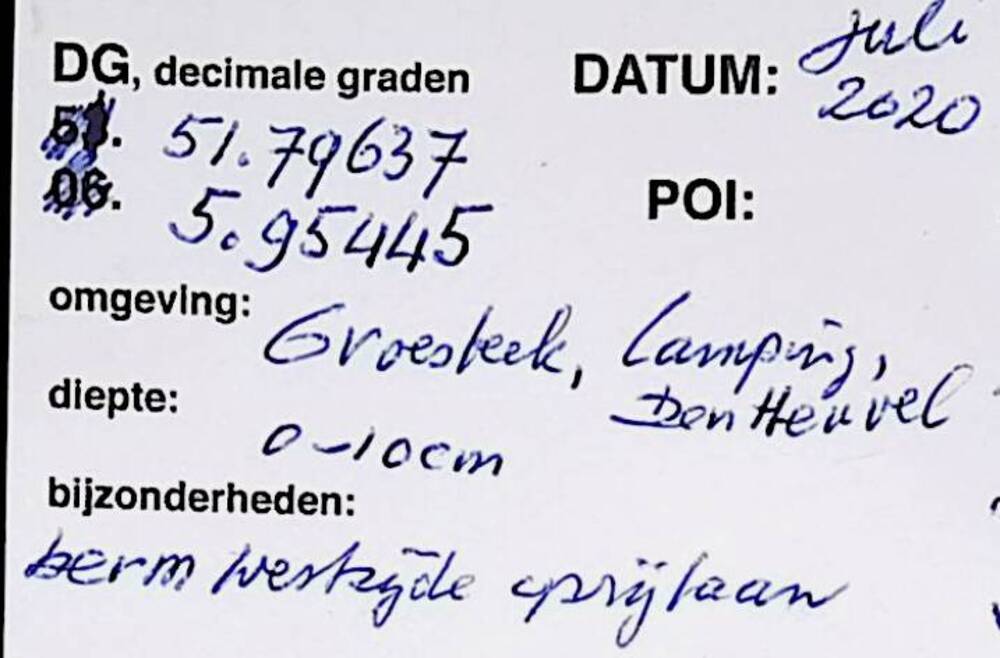 DG, decimale graden
DATUM: juli
2020
51. 51.79637
06. 5.95445
POI:
omgeving: Groesbeek, Camping,
Den Heuvel
diepte:
0-10cm
bijzonderheden:
berm westzijde oprijlaan